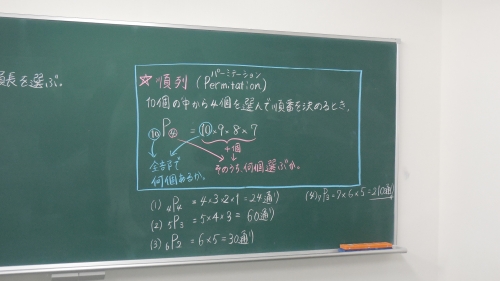 長を選ぶ。
パーミテーション
☆順列 (Permitation)
10個の中から4個を選んで順番を決めるとき、
₁₀P₄ = 10×9×8×7
4個
全部で何個あるか。
そのうち、何個選ぶか。
(1) ₄P₄ = 4×3×2×1 = 24通り
(2) ₅P₃ = 5×4×3 = 60通り
(3) ₆P₂ = 6×5 = 30通り
(4) ₇P₃ = 7×6×5 = 210通り